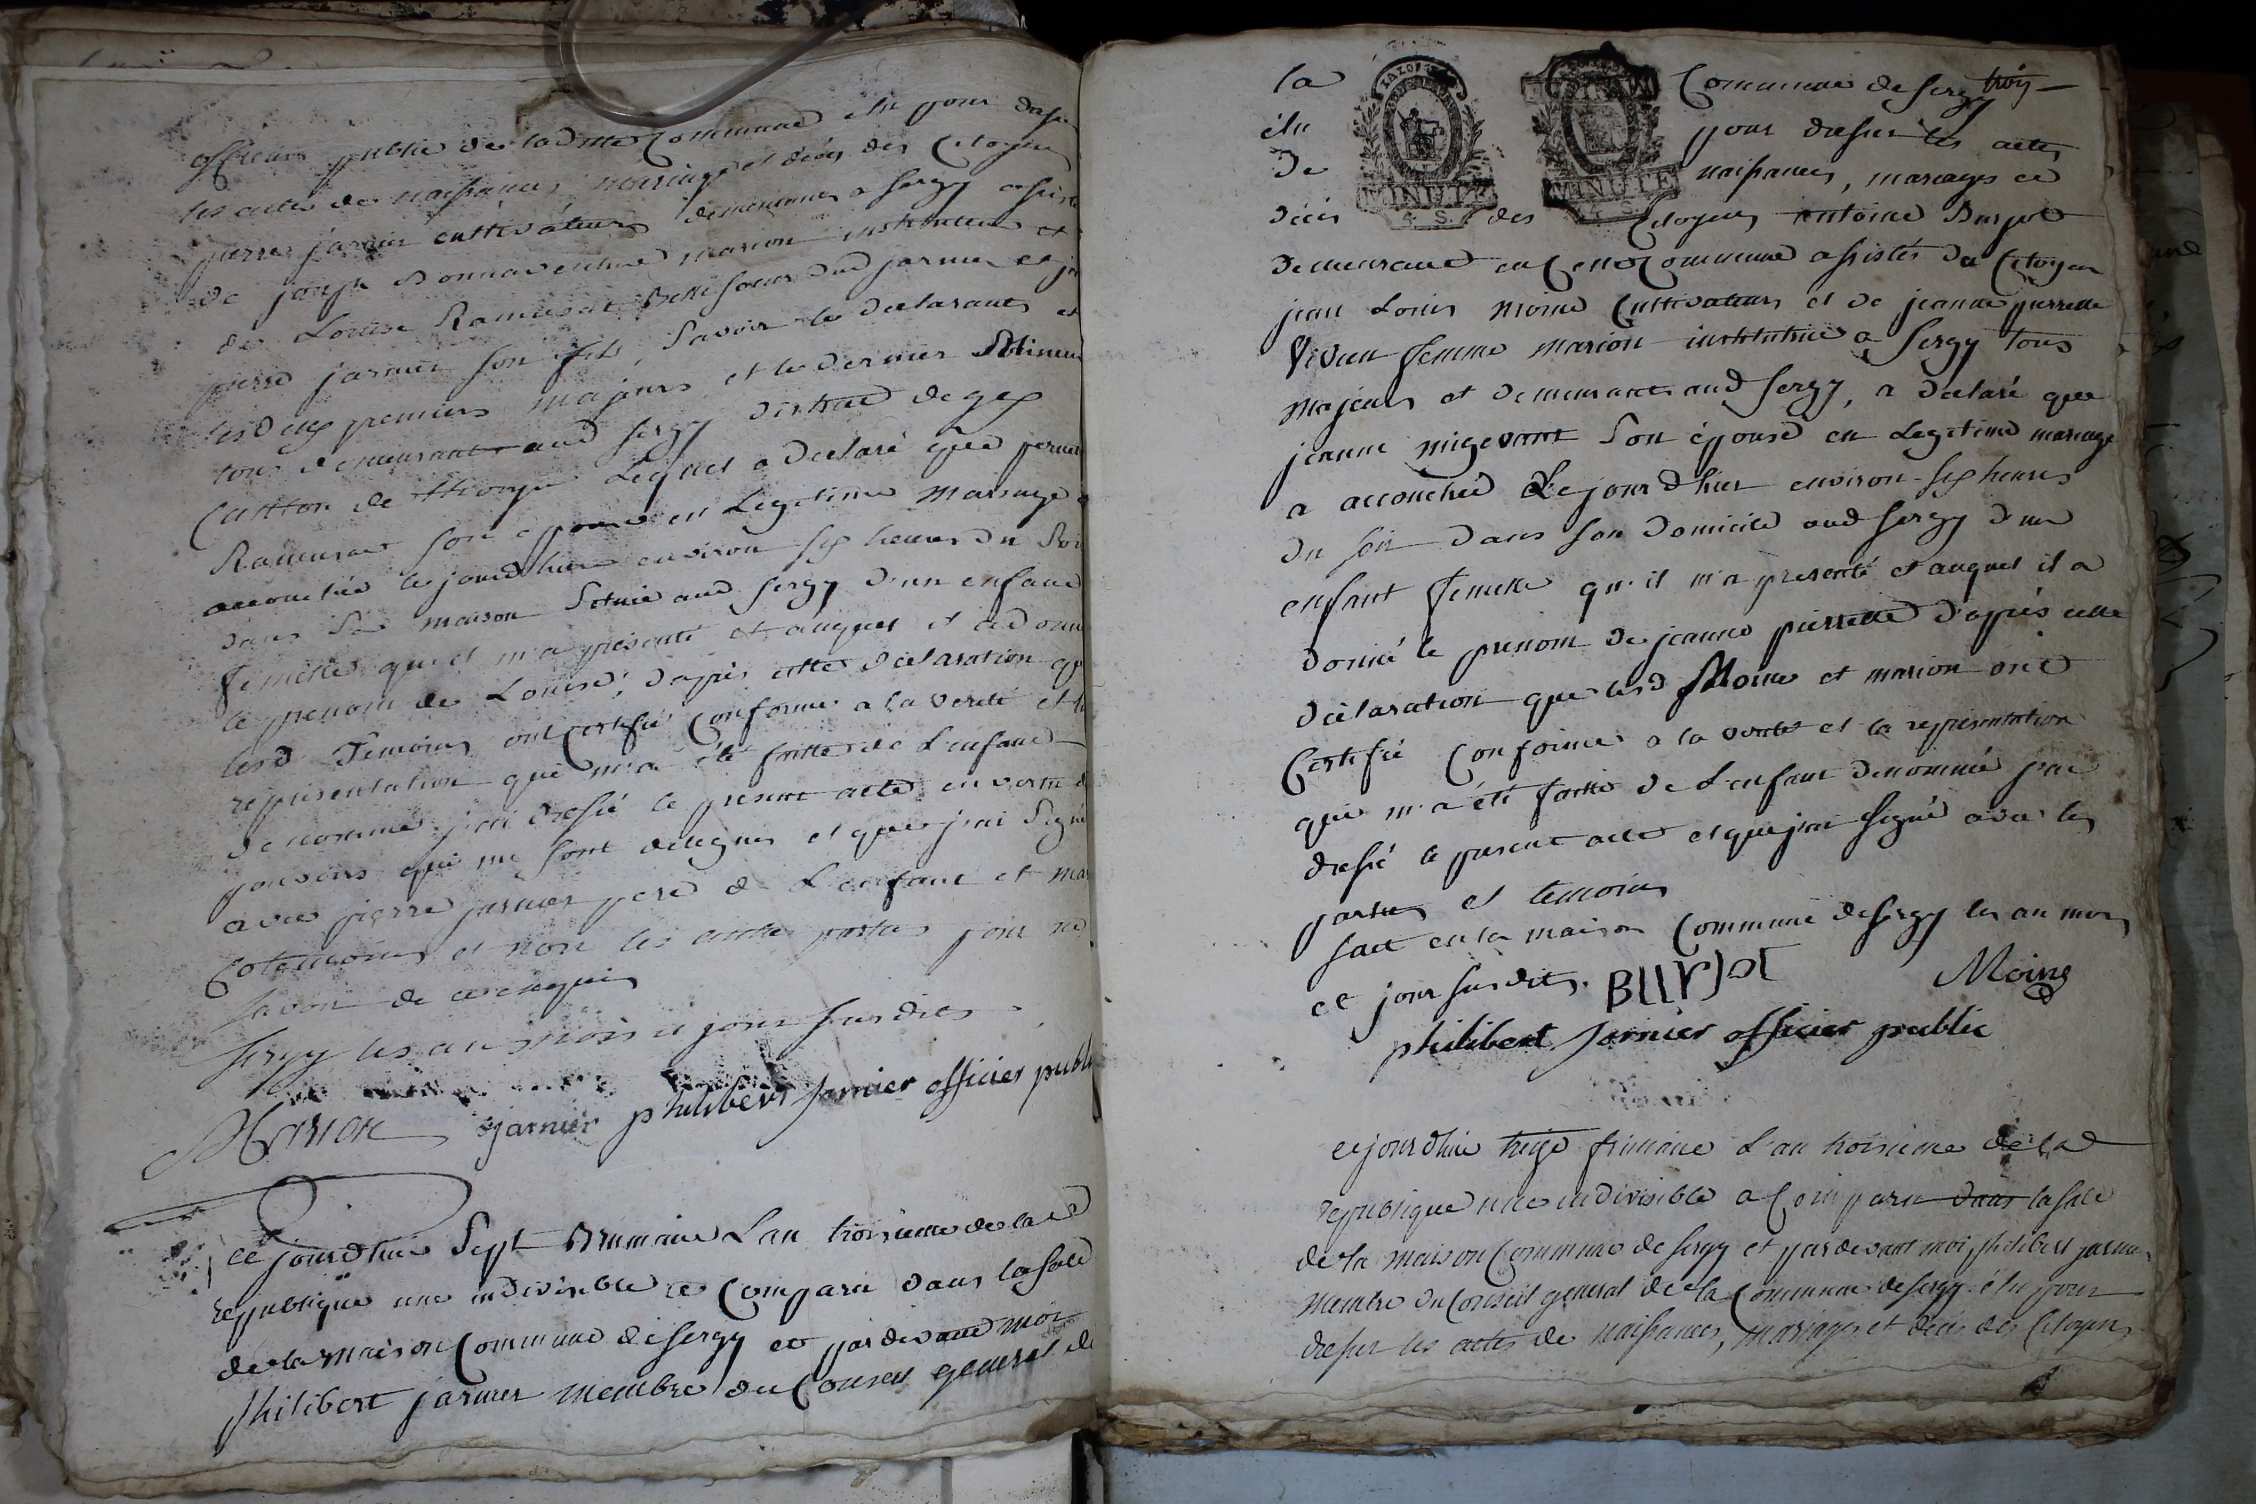 officier public de laditte Commune élu pour dresser
les actes de naissances, mariages et décés des Citoyens
pierre jarnier cultivateur demeurant a Sergy assisté
de joseph Bonnaventure marion instituteur et
de Louise Ramusat Belle soeur dud jarnier et
pierre jarnier son fils, savoir les declarants et
les deux premiers majeurs et le dernier
tous demeurants aud Sergy district de gex
Canton de thoiry Lequel a declaré que
Ramusat son epouse en Legitime mariage a
accouchée le jourdhier environ six heures du Soir
dans Sa maison Scituée aud Sergy d'un enfant
femelle qu'il m'a présenté et auquel il a donné
le prenom de Louise, d'après cette déclaration que
lesd Temoins ont Certifié Conforme a la verité et la
représentation qui m'a été faitte de L'enfant
denommé j'ai dressé le present acte en vertu des
pouvoirs qui me sont delegués et que j'ai Signé
avec pierre jarnier pere de L'enfant et marion
Cotemoins et non les autres parties pour ne
Savoir de ce enquis
Sergy les an mois et jour Susdits
Marion jarnier philibert Jarnier officier public
Ce jourdhui Sept Brumaire L'an troisieme de la
république une indivisible a Comparu dans la sale
de la maison Commune de Sergy et pardevant moi
philibert jarnier membre du Conseil general de
la Commune de Sergy
élu pour dresser les actes
de naissances, mariages et
décés des Citoyens antoine Burjot
demeurant en Cette Commune assistés du Citoyen
jean Louis moine Cultivateur et de jeanne pierrette
femme marion institutrice a Sergy tous
majeurs et demeurants aud Sergy, a déclaré que
jeanne Son épouse en Legitime mariage
a accouchée Le jour d'hier environ six heures
du soir dans son domicile aud Sergy d'un
enfant femelle qu'il m'a presenté et auquel il a
donné le prenom de jeanne pierrette d'après cette
déclaration que lesd Moine et marion ont
Certifié Conforme a la verité et la representation
qui m'a été faitte de L'enfant denommé j'ai
dressé le present acte et que j'ai signé avec les
parties et temoins
fait en la maison Commune de Sergy les an mois
et jour susdits. BURJOT Moine
philibert Jarnier officier public
cejourdhui treize frimaire L'an troisieme de la
republique une indivisible a Comparu dans la sale
de la maison Commune de Sergy et pardevant moi philibert jarnier
membre du Conseil general de la Commune de Sergy élu pour
dresser les actes de naissances, mariages et décés des Citoyens